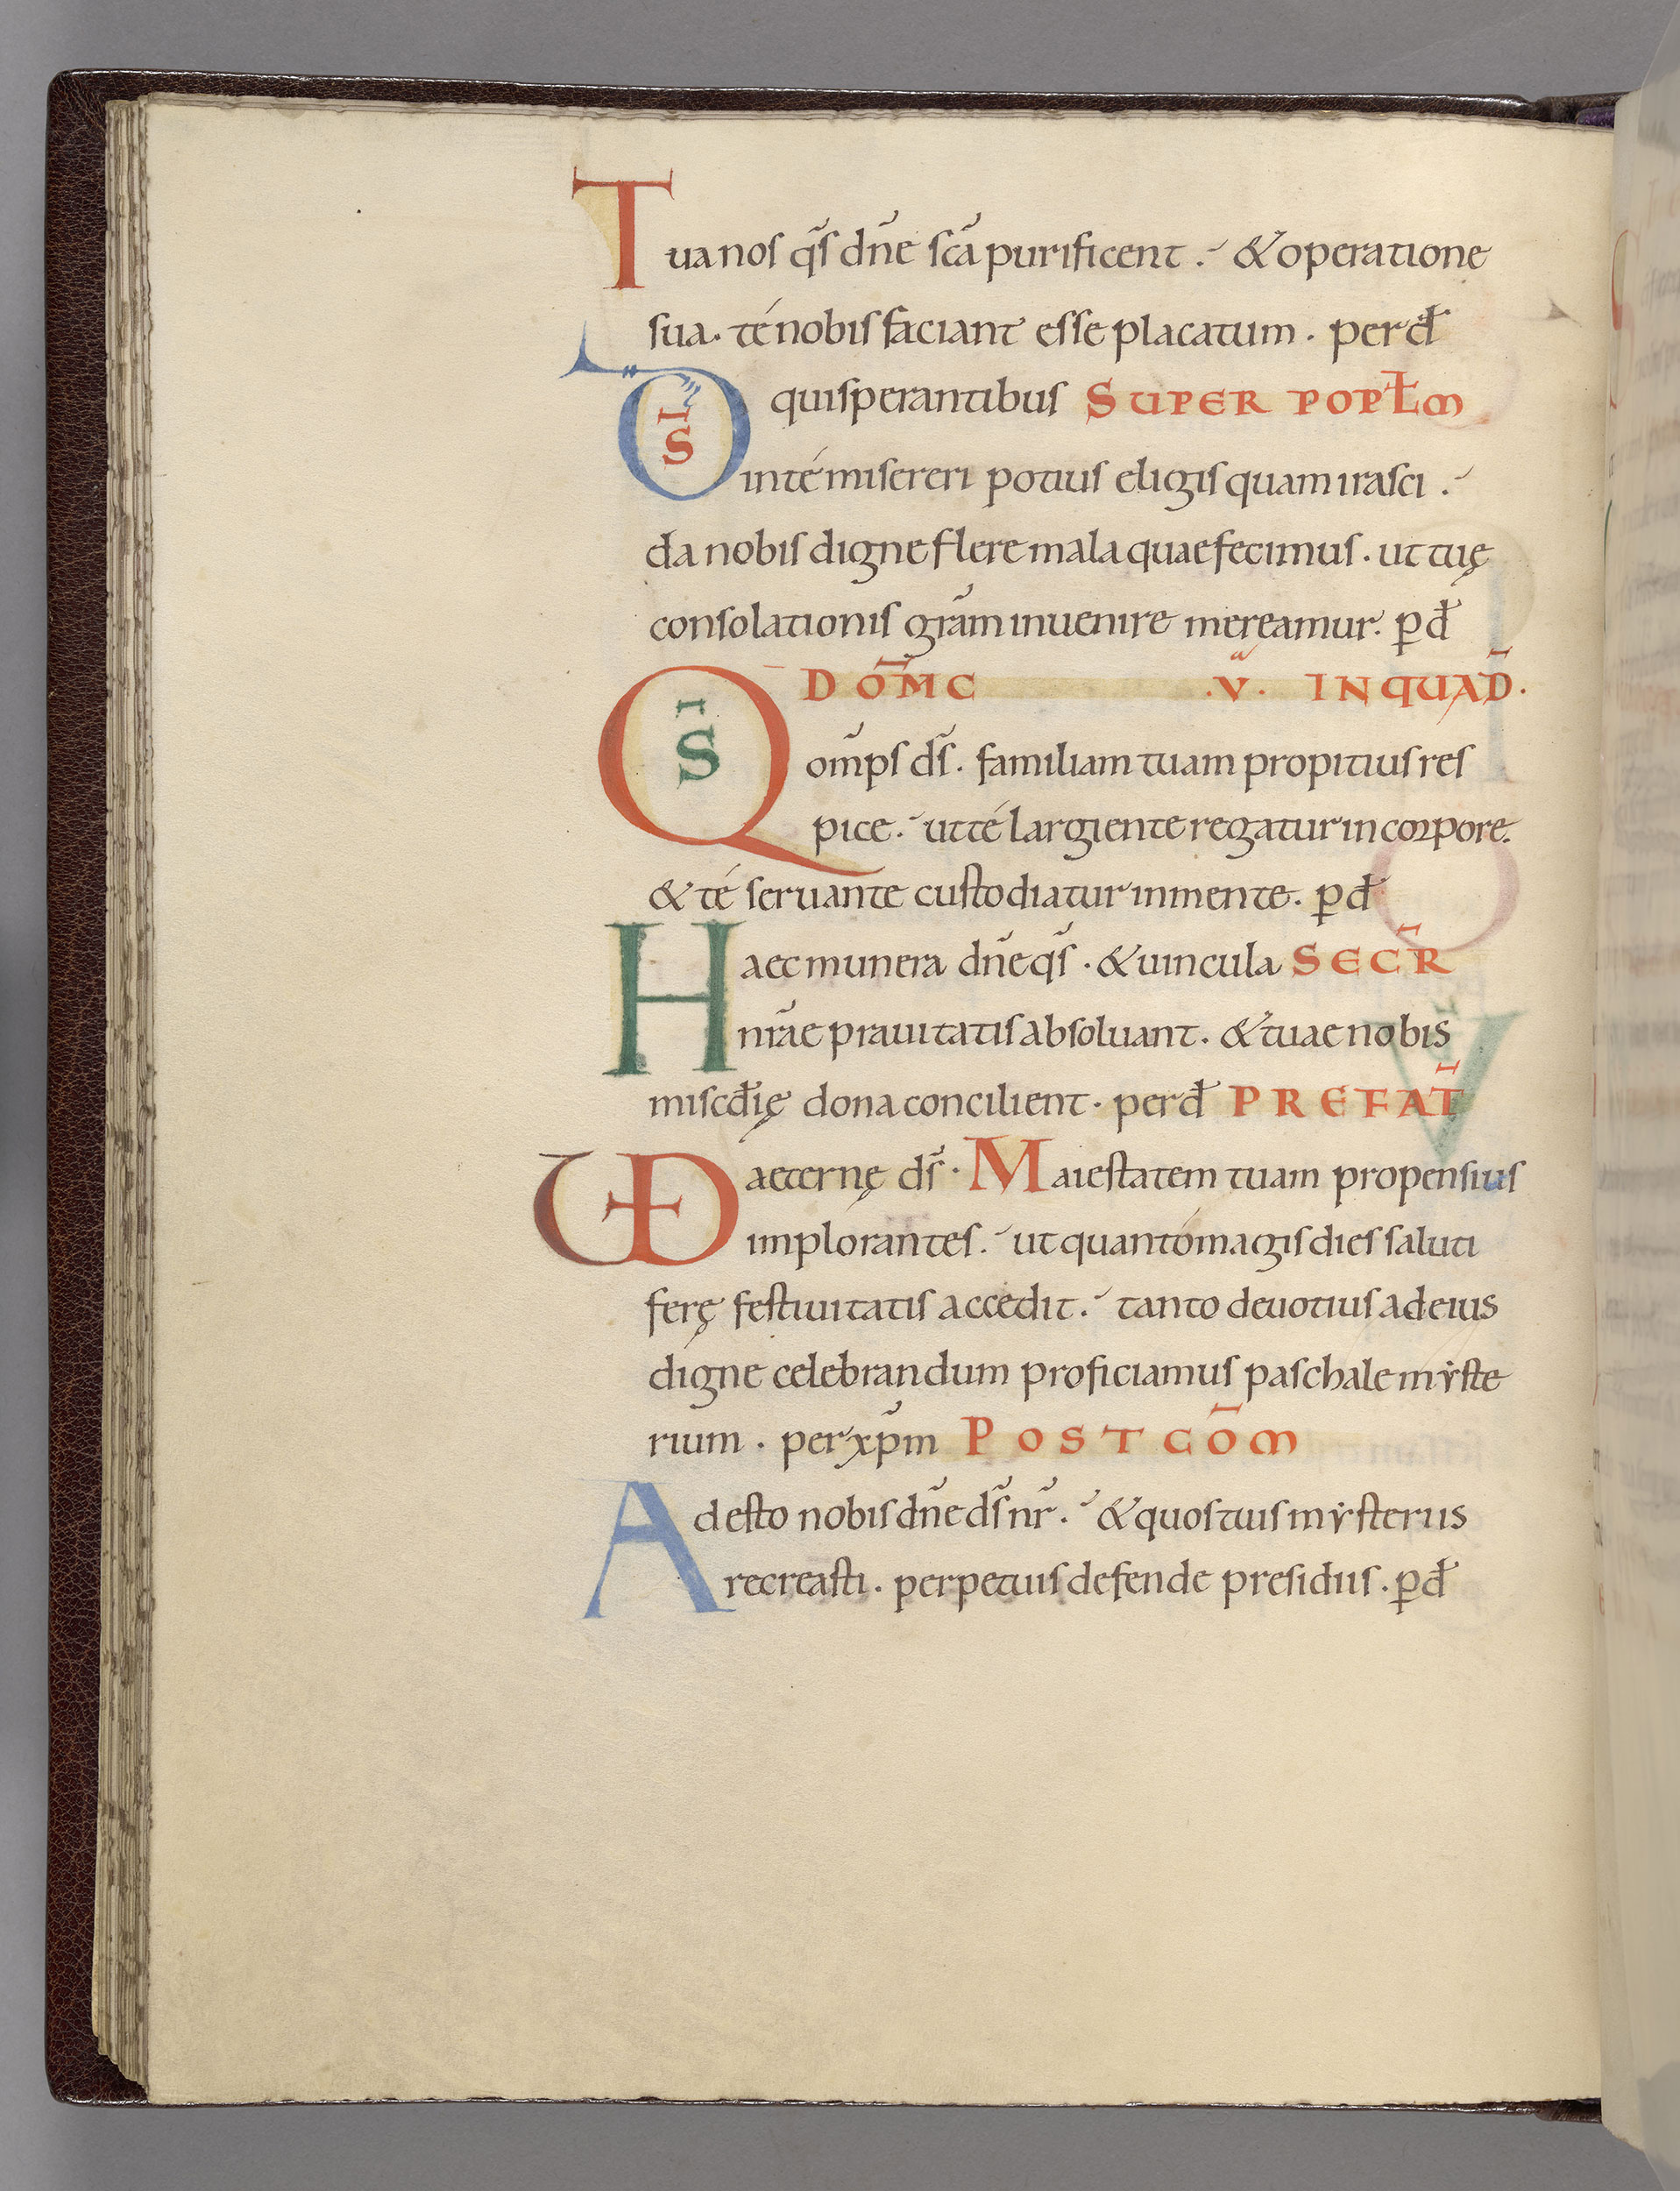 Tua nos q̄s dn̄e sc̄a purificent . & operatione
sua . té nobis faciant esse placatum . per d̄
D̄S qui sperantibus SUPER POPŁM
in té misereri potius eligis quam irasci .
da nobis digne flere mala quae fecimus . ut tuę
consolationis gr̄am inuenire mereamur . ꝑ d̄
DŌMC .V.a IN QUAD̄ .
Q̄S om̄ps d̄s . familiam tuam propitius res
pice . ut té largiente regatur in corpore .
& té seruante custodiatur in mente . ꝑ d̄
Haec munera dn̄e q̄s . & uincula SECR̄
nr̄ae prauitatis absoluant . & tuae nobis
miscd̄ię dona concilient . per d̄ PREFAT̄
VD aeternę d̄s . Maiestatem tuam propensius
implorantes . ut quantó magis dies saluti
ferę festiuitatis accedit . tanto deuotius ad eius
digne celebrandum proficiamus paschale mẏste
rium . per xp̄m POST CŌM
Adesto nobis dn̄e d̄s nr̄ . & quos tuis mẏsteriis
recreasti . perpetuis defende presidiis . ꝑ d̄